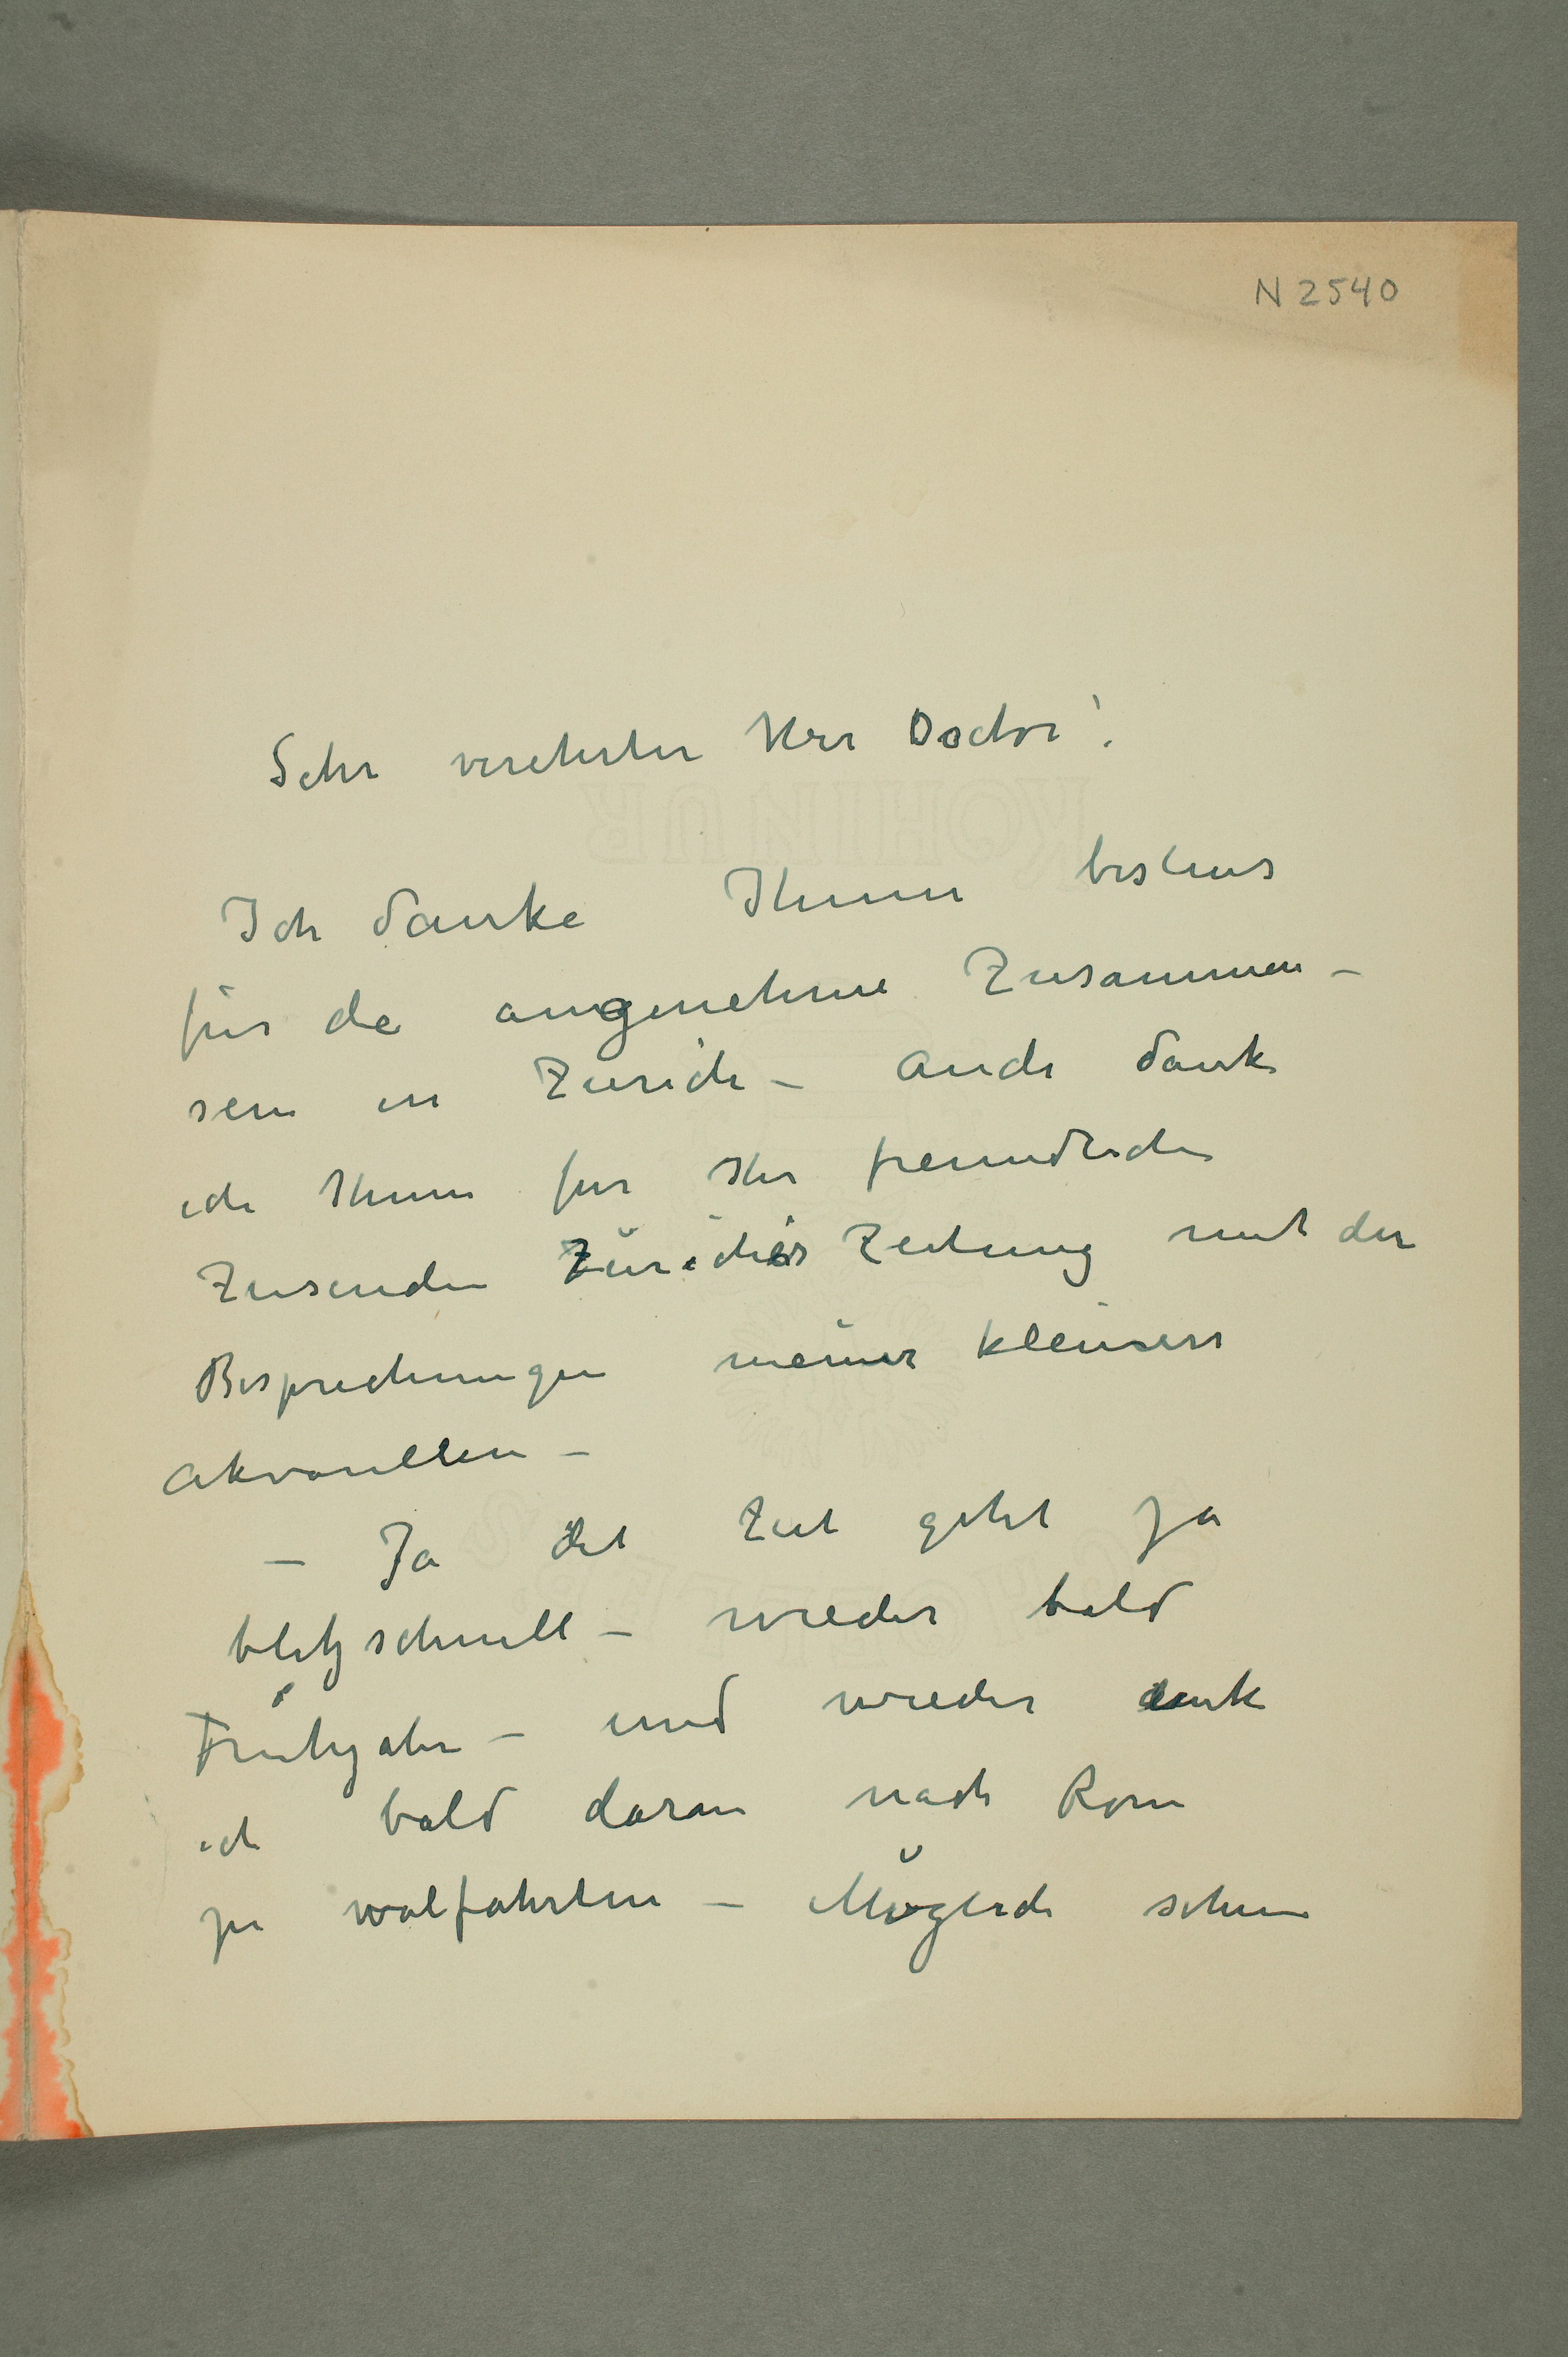 N 2540
Sehr verehrter Herr Doctor!
Ich danke Ihnen bestens
für de angenehme Zusammen–
sein in Zürich – auch dank
ich Ihnen für Ihr freundliche
Zusenden Züricher Zeitung mit der
Besprechungen meiner kleinere
Akvarellen –
– Ja det Zeit geht ja
blitzschnell – wieder bald
Frühjahr – und wieder denk
ich bald daran nach Rom
zu walfahrten – Möglich schon
KOHINUR